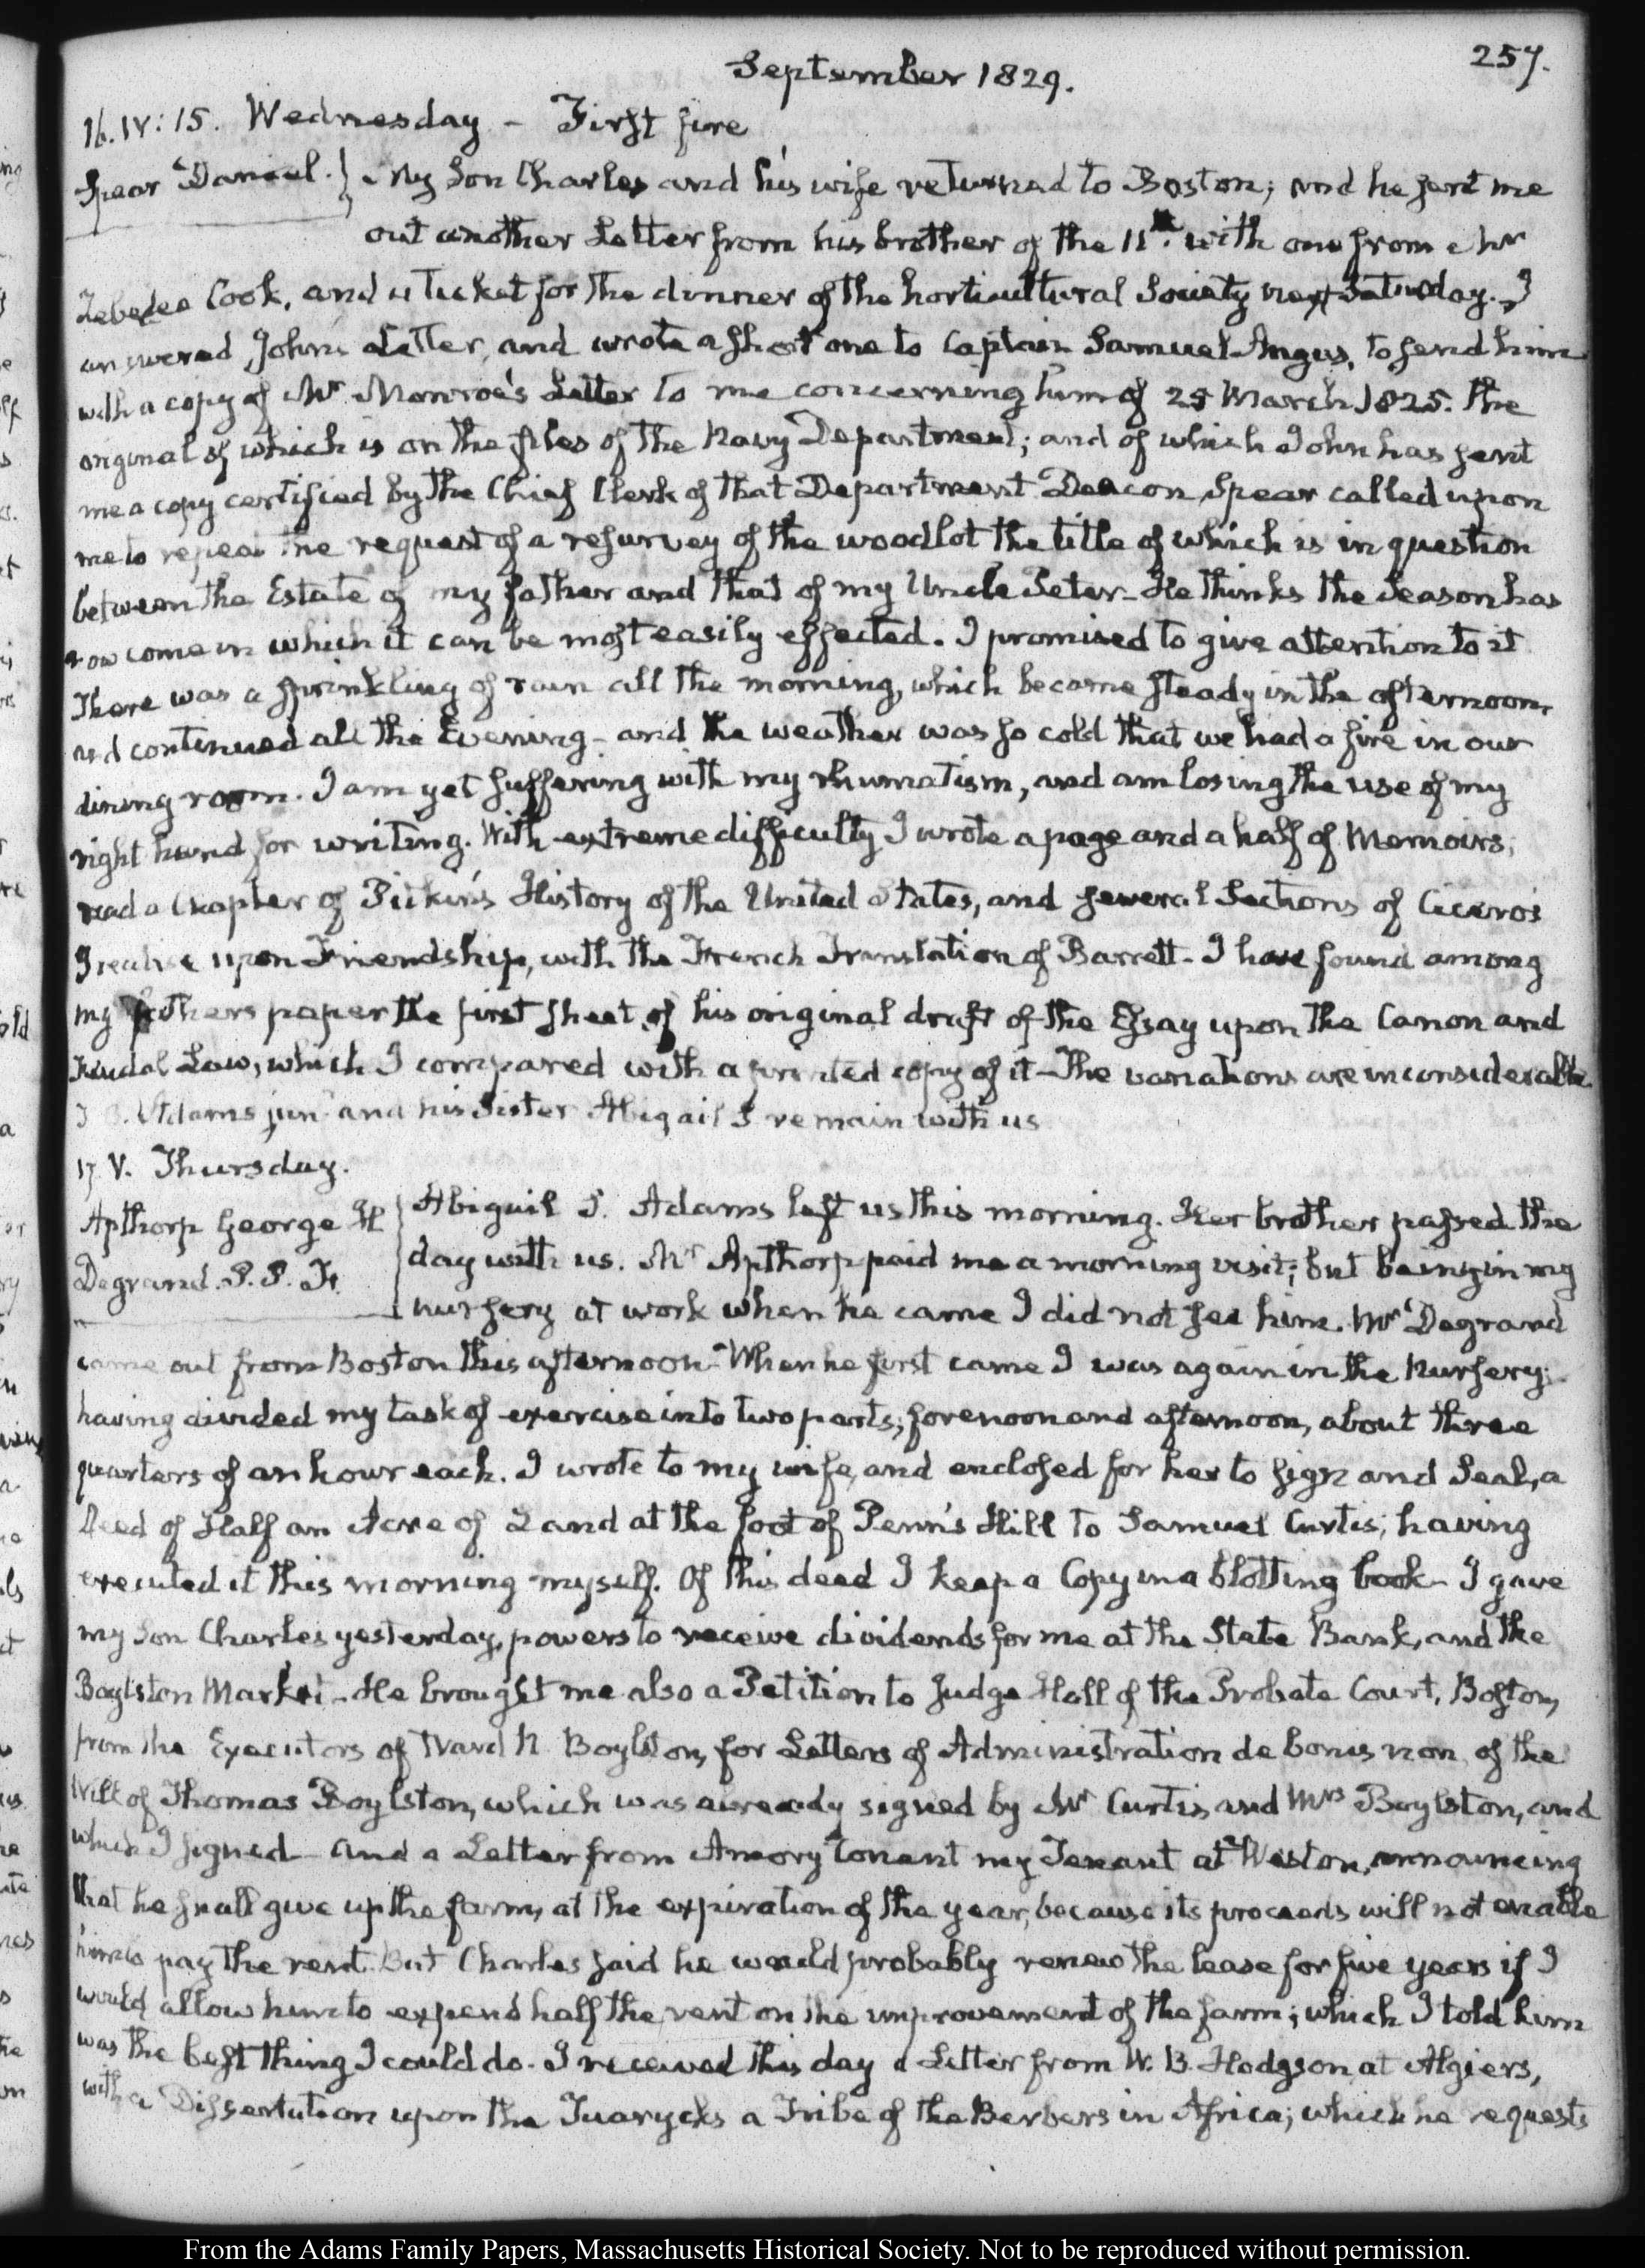 257.
September 1829.
16. IV:15. Wednesday - First fire
Spear Daniel. } My Son Charles and his wife returned to Boston; and he sent me
out another Letter from his brother of the 11th. with one from Mr
Zebedee Cook, and a Ticket for the dinner of the horticultural Society next Saturday. I
answered John's Letter, and wrote a short one to Captain Samuel Angus, to send him
with a copy of Mr Monroe's Letter to me concerning him of March 1825. the
original of which is on the files of the Navy Department; and of which John has sent
me a copy certified by the Chief Clerk of that Department Deacon Spear called upon
me to repeat the request of a resurvey of the woodlot the title of which is in question
between the Estate of my father and that of my Uncle Peter - He thinks the Season has
now come in which it can be most easily effected. I promised to give attention to it
There was a sprinkling of rain all the morning, which became steady in the afternoon,
and continued all the Evening - and the weather was so cold that we had a fire in our
dining room. I am yet suffering with my rhumatism, and am losing the use of my
right hand for writing. With extreme difficulty I wrote a page and a half of Memoirs;
read a Chapter of Pitkin's History of the United States, and several Sections of Cicero's
Treatise upon Friendship, with the French Translation of Barrett - I have found among
my fathers paper the first sheet of his original draft of the Essay upon the Canon and
Feudal Law, which I compared with a printed copy of it - The variations are inconsiderable
J. B. Adams junr and his Sister Abigail S remain with us
17 V. Thursday.
Apthorp George H
Degrand. P. P. F.
Abigail S. Adams left us this morning. Her brother passed the
day with us. Mr Apthorp paid me a morning visit; but being in my
nursery at work when he came I did not see him. Mr Degrand
came out from Boston this afternoon - When he first came I was again in the Nursery;
having divided my task of exercise into two parts; forenoon and afternoon, about three
quarters of an hour each. I wrote to my wife, and enclosed for her to sign and Seal, a
Deed of Half an Acre of Land at the foot of Penn's Hill to Samuel Curtis; having
executed it this morning myself. Of this deed I keep a Copy in a blotting book - I gave
my Son Charles yesterday, powers to receive dividends for me at the State Bank, and the
Boylston Market - He brought me also a Petition to Judge Hall of the Probate Court, Boston,
from the Executors of Ward N. Boylston, for Letters of Administration de bonis non of the
Will of Thomas Boylston, which was already signed by Mr Curtis and Mrs Boylston, and
which I signed - and a Letter from Amory my Tenant at Weston, announcing
that he shall give up the farm, at the expiration of the year, because its proceeds will not enable
him to pay the rent. But Charles said he would probably renew the lease for five years if I
would allow him to expend half the rent on the improvement of the farm; which I told him
was the best thing I could do. I received this day a Letter from W. B. Hodgson at Algiers,
with a Dissertation upon the Tuarycks a Tribe of the Berbers in Africa; which he requests
From the Adams Family Papers, Massachusetts Historical Society. Not to be reproduced without permission.